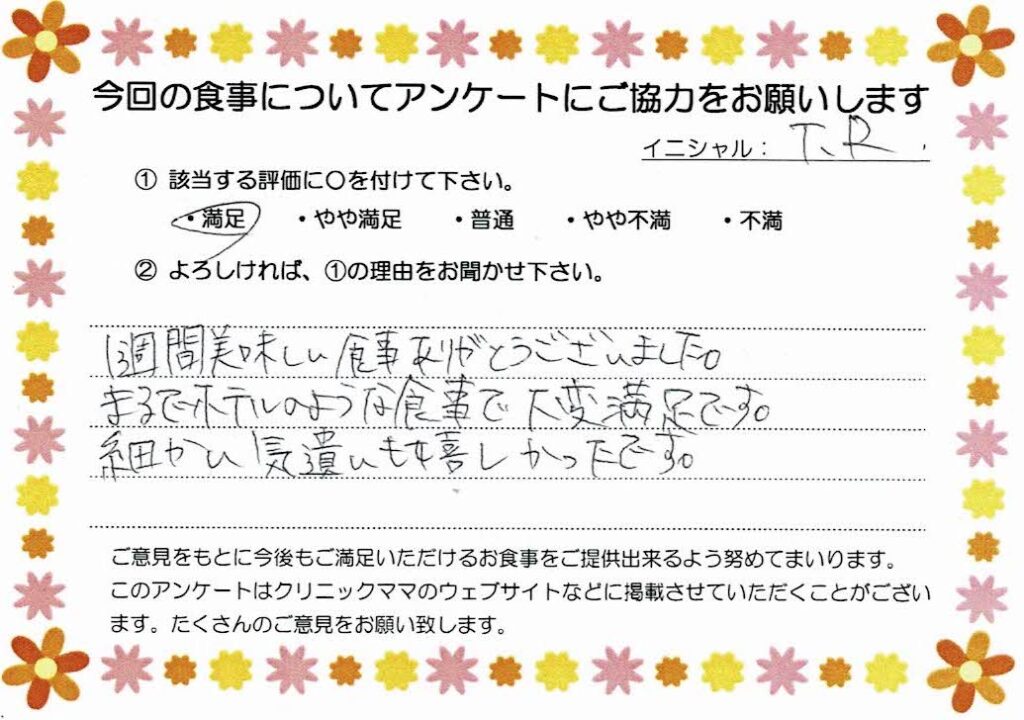 今回の食事についてアンケートにご協力をお願いします
イニシャル： T、R.
① 該当する評価に〇を付けて下さい。
・満足 ・やや満足 ・普通 ・やや不満 ・不満
② よろしければ、①の理由をお聞かせ下さい。
1週間美味しい食事ありがとうございました。
まるでホテルのような食事で大変満足です。
細かい気遣いも嬉しかったです。
ご意見をもとに今後もご満足いただけるお食事をご提供出来るよう努めてまいります。
このアンケートはクリニックママのウェブサイトなどに掲載させていただくことがござい
ます。たくさんのご意見をお願い致します。